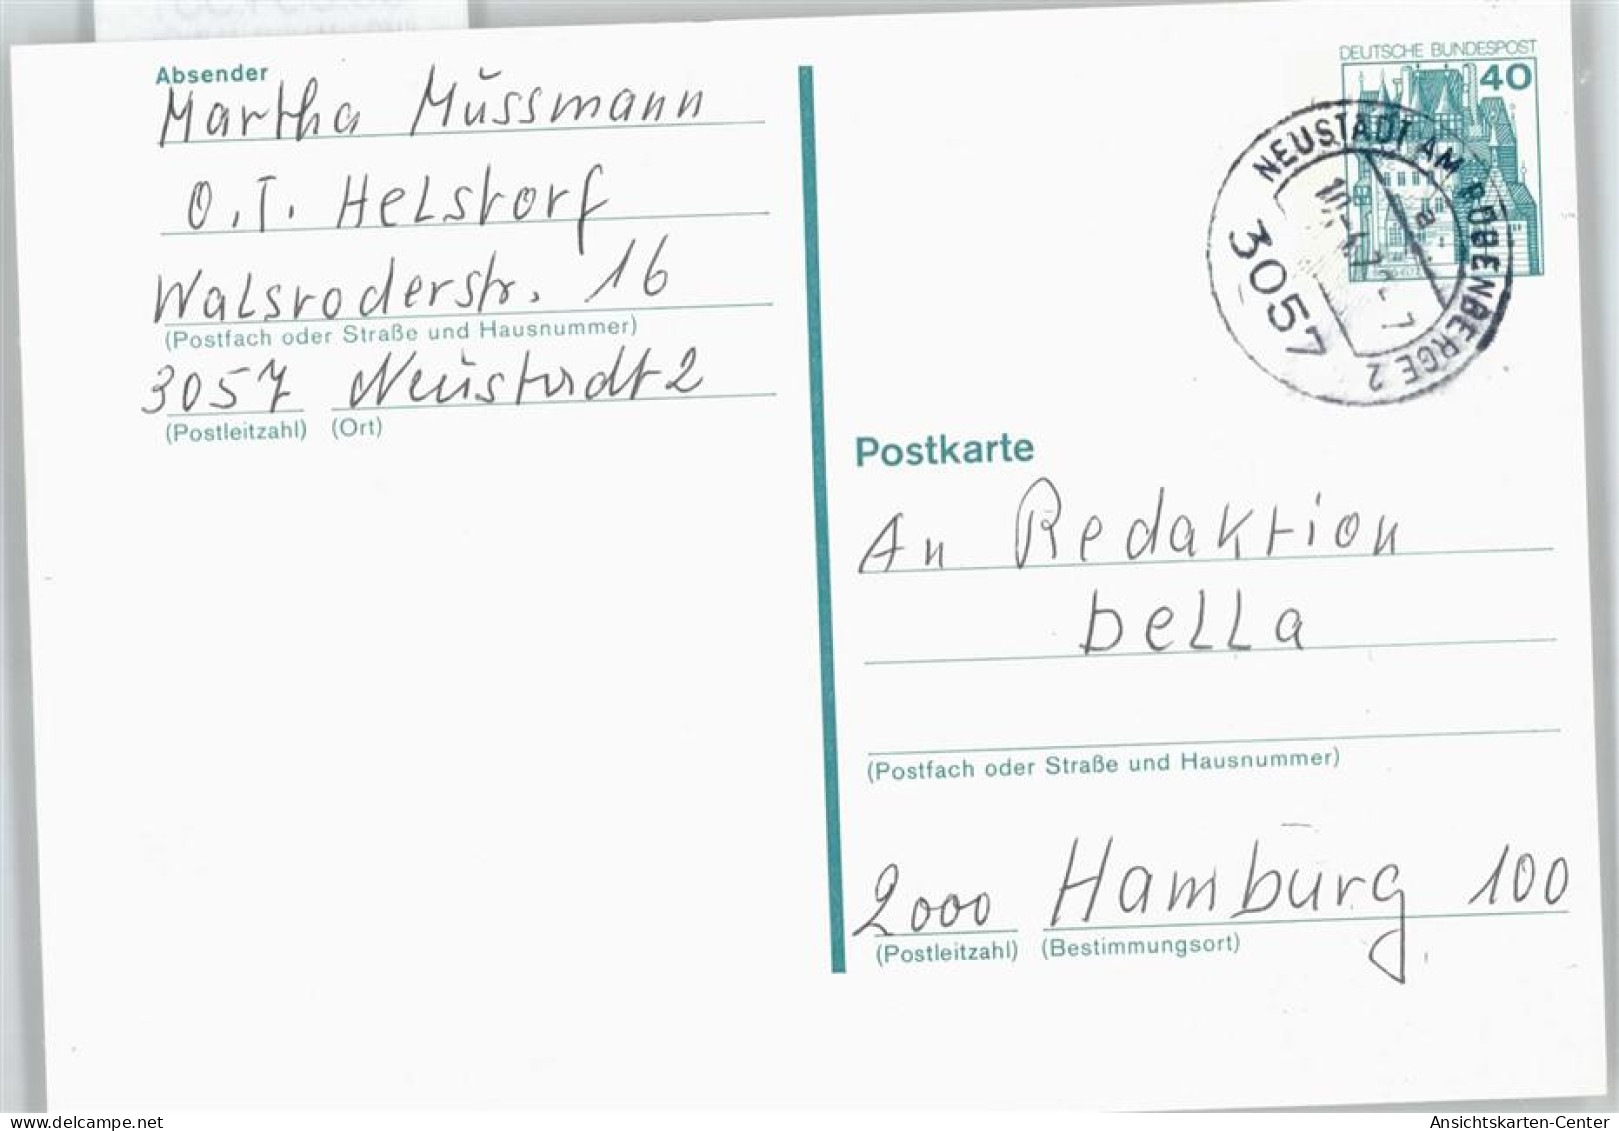 Absender
Martha Mussmann
O.T. Helstorf
Walsroderstr. 16
(Postfach oder Straße und Hausnummer)
3057 Neustadt 2
(Postleitzahl) (Ort)
DEUTSCHE BUNDESPOST
40
NEUSTADT AM RÜBENBERGE 2
3057
Postkarte
An Redaktion
bella
(Postfach oder Straße und Hausnummer)
2000 Hamburg 100
(Postleitzahl) (Bestimmungsort)
www.delcampe.net
Ansichtskarten-Center